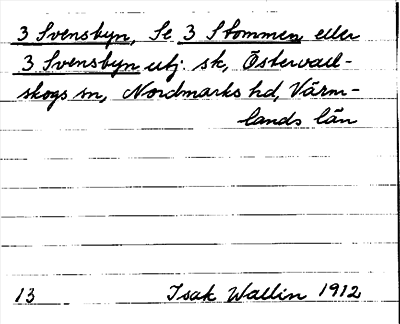 3 Svensbyn, Se 3 Stommen eller
3 Svensbyn utj. sk, Östervall-
skogs sn, Nordmarks hd, Värm-
lands län
13 Isak Wallin 1912